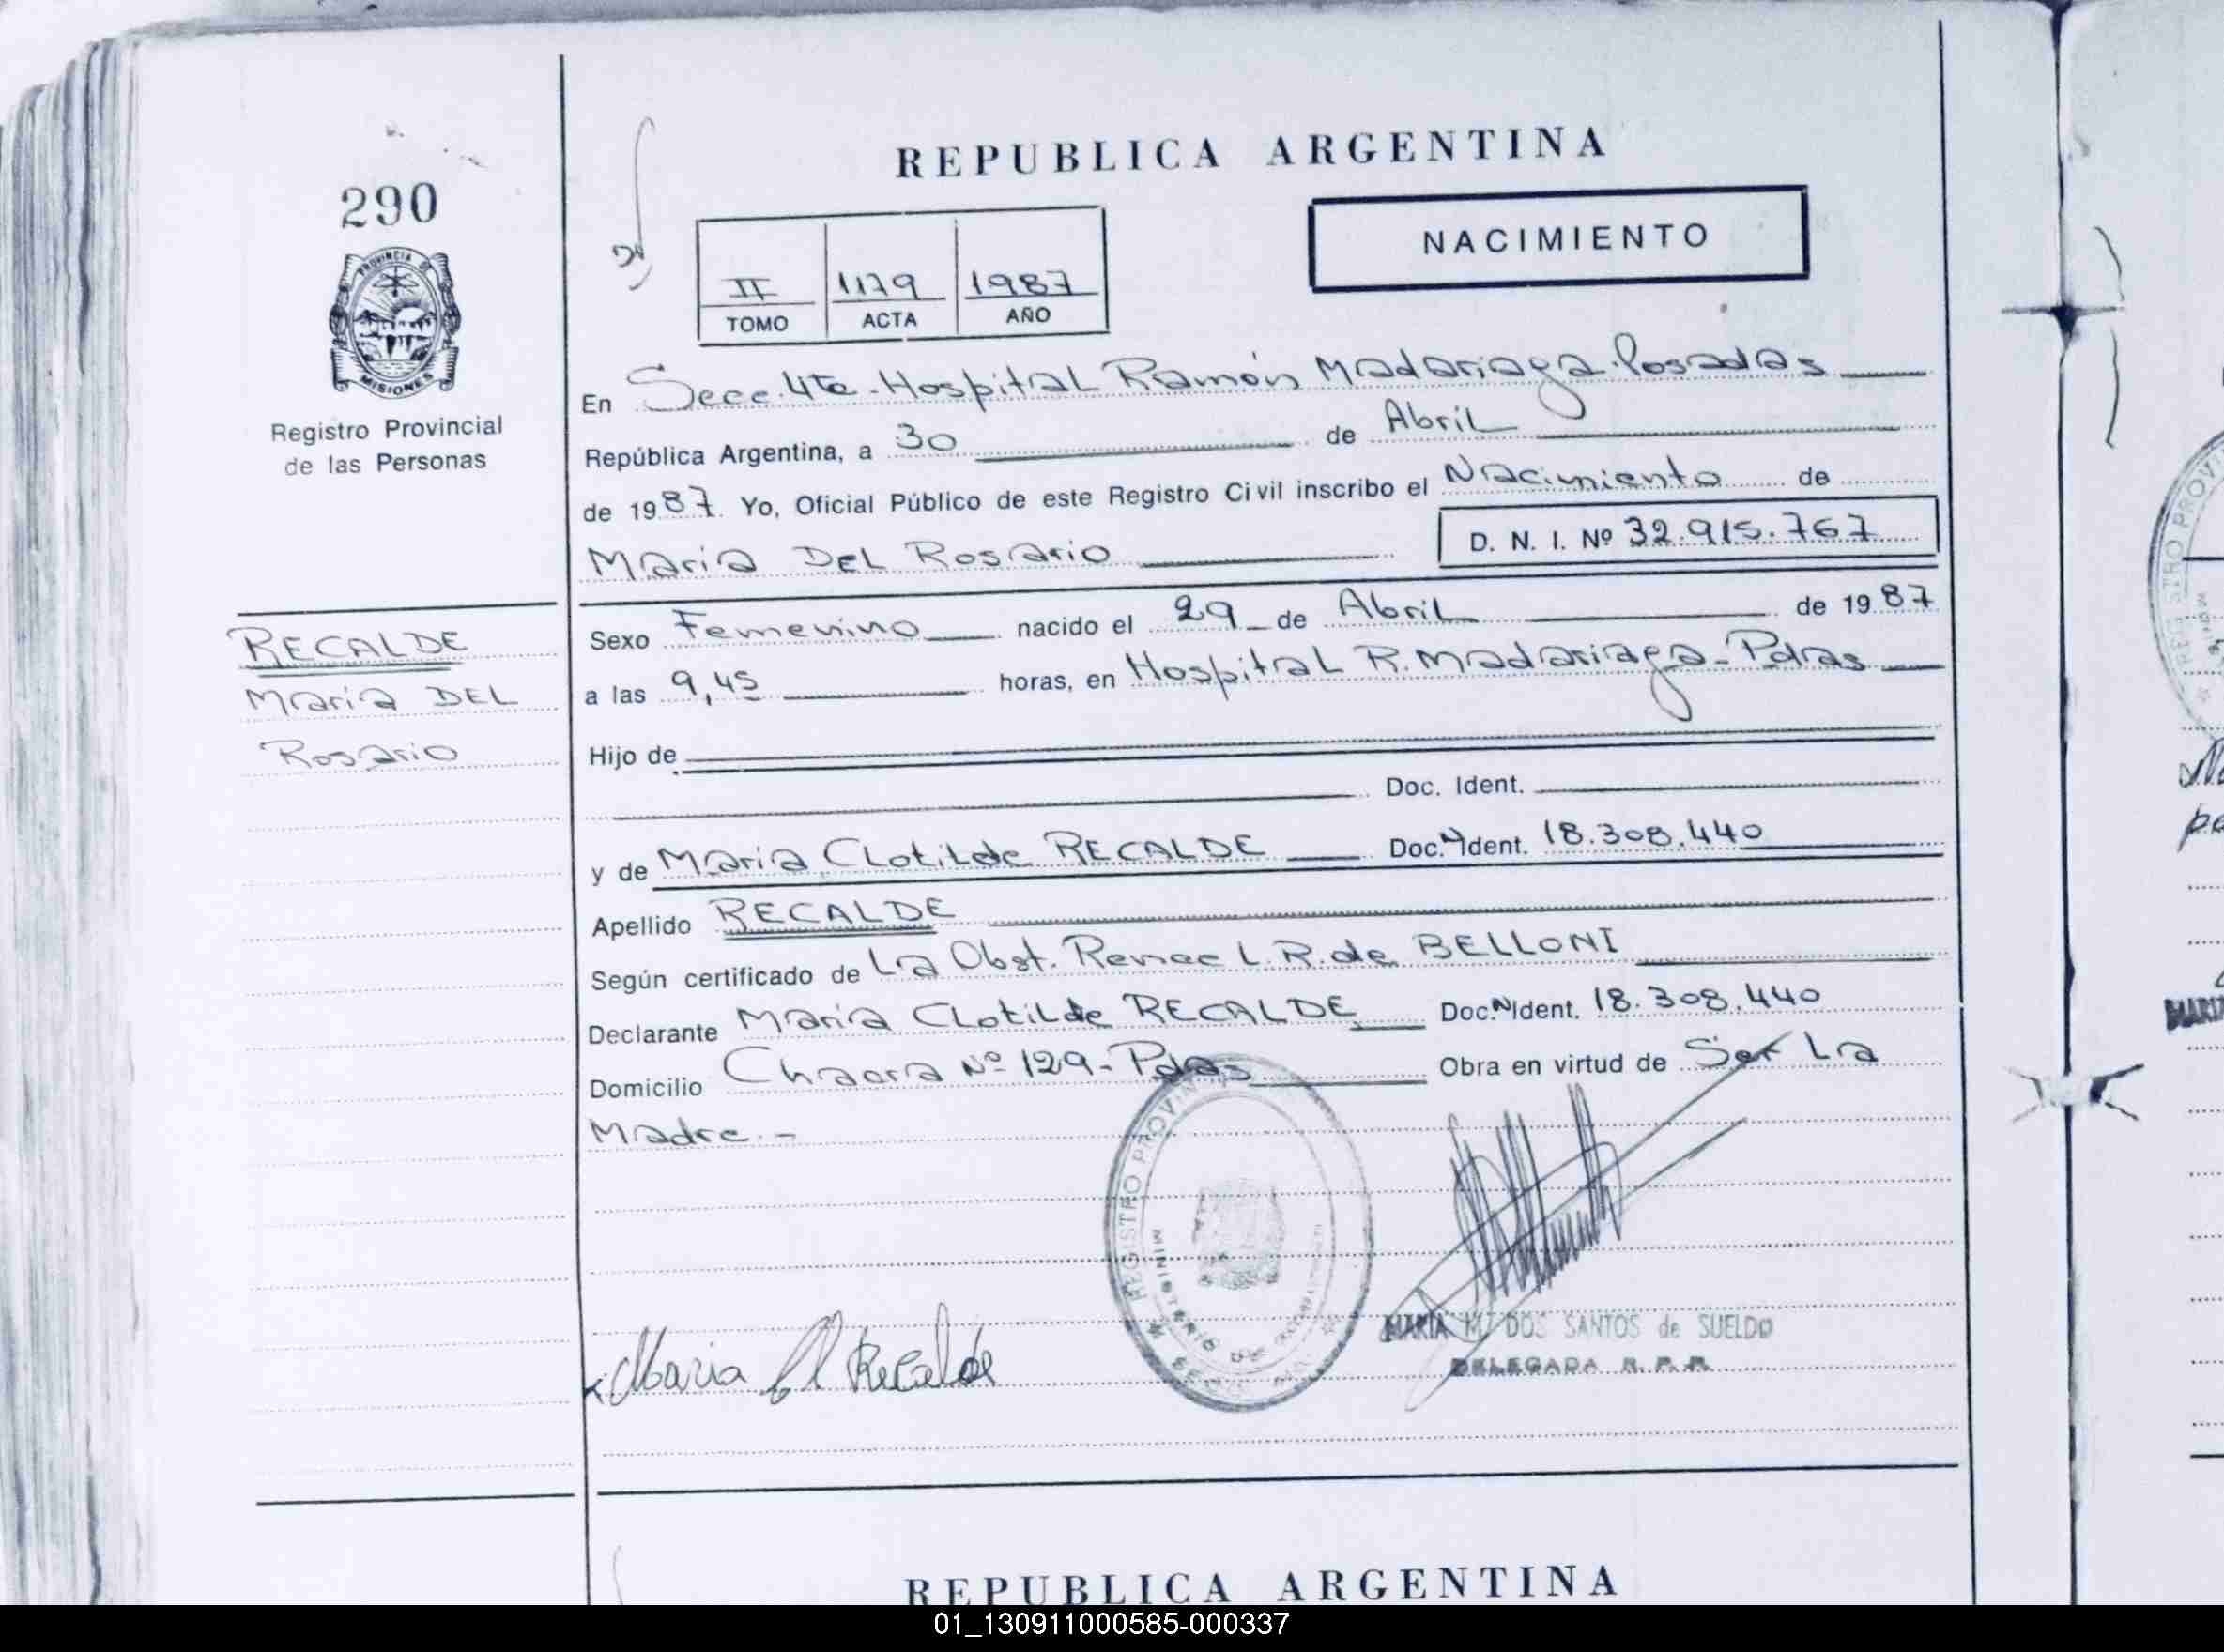 REPUBLICA ARGENTINA
290
NACIMIENTO
II 1179 1987
TOMO ACTA AÑO
PROVINCIA DE
MISIONES
Registro Provincial
de las Personas
En Secc. 4ta. Hospital Ramón Madariaga. Posadas
República Argentina, a 30 de Abril
de 1987. Yo, Oficial Público de este Registro Civil inscribo el Nacimiento de
Maria DEL Rosario D. N. I. Nº 32.915.767
RECALDE
Maria DEL
Rosario
Sexo Femenino nacido el 29 de Abril de 1987
a las 9,45 horas, en Hospital R. Madariaga - Pdas
Hijo de
Doc. Ident.
y de Maria CLotilde RECALDE Doc. N Ident. 18.308.440
Apellido RECALDE
Según certificado de La Obst. Renee L. R. de BELLONI
Declarante Maria CLotilde RECALDE Doc. N Ident. 18.308.440
Domicilio Chacra Nº 129 - Pdas Obra en virtud de Ser La
Madre. -
REGISTRO PROVIN
MINISTERIO DE
Maria Cl Recalde
MARIA M. DOS SANTOS de SUELDO
DELEGADA R. P. P.
REPUBLICA ARGENTINA
01_130911000585-000337